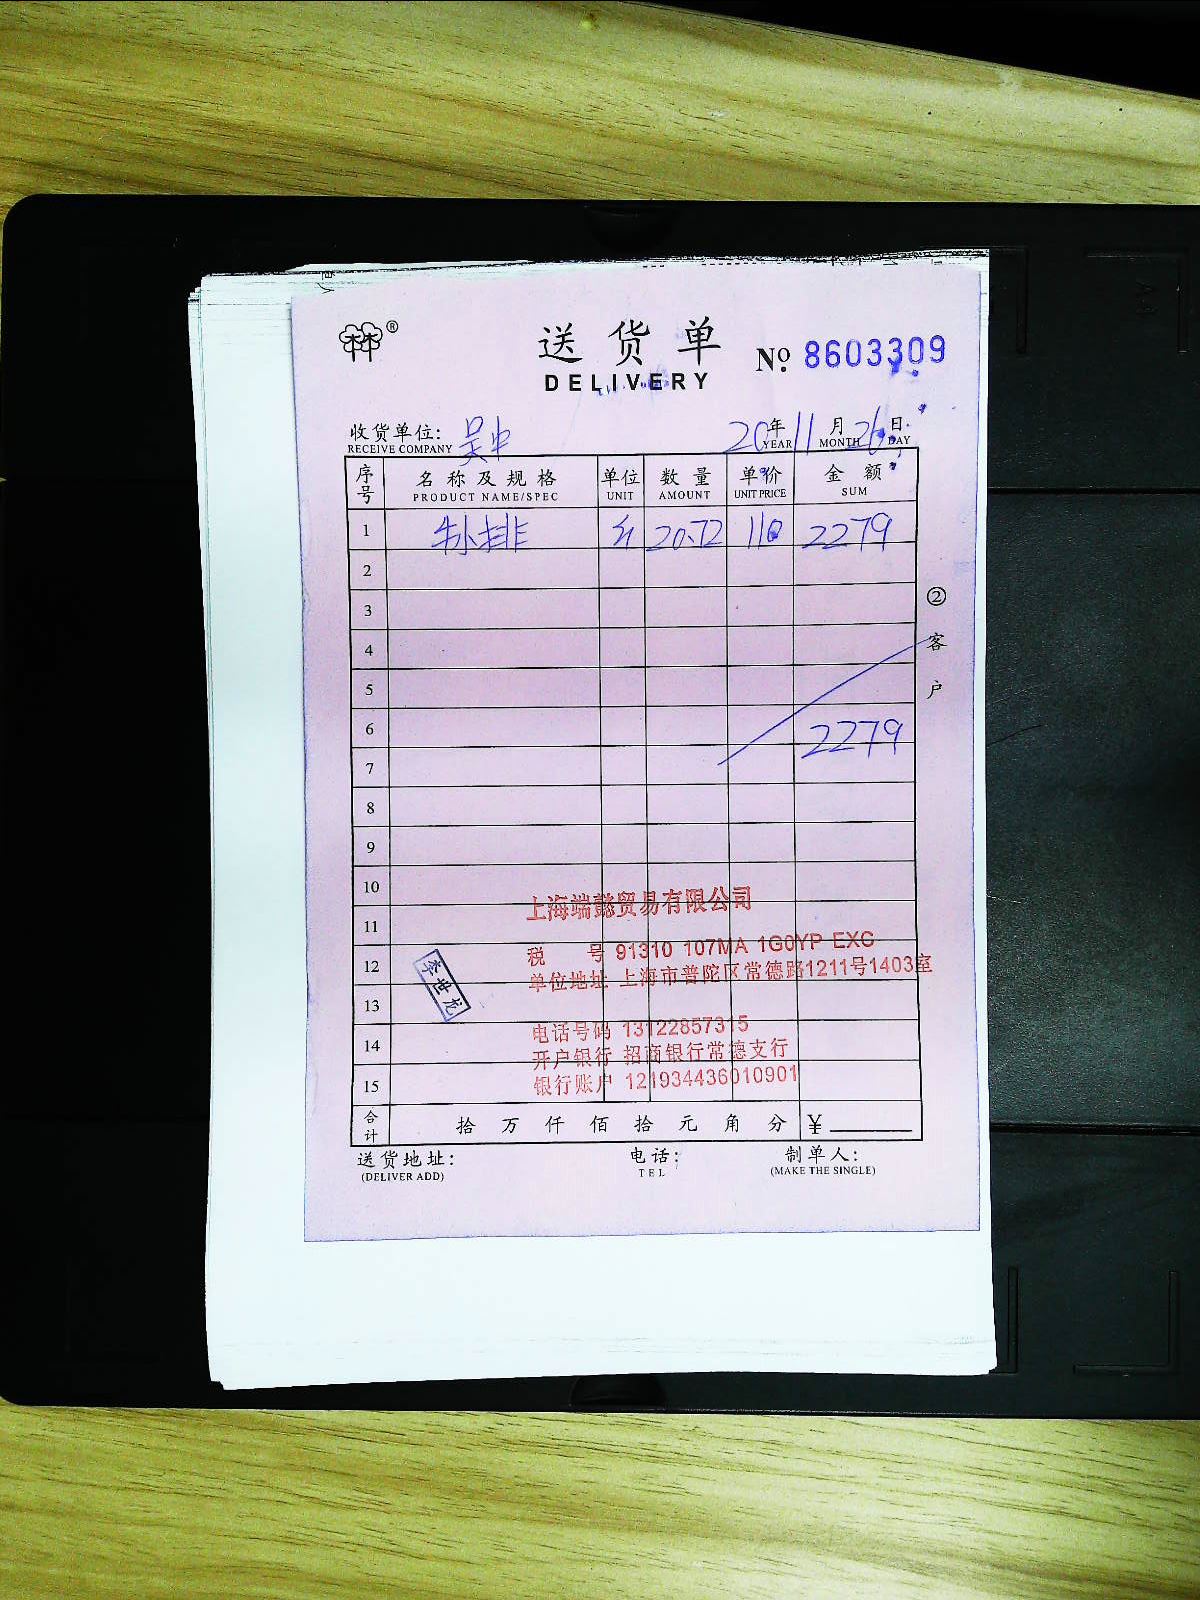 ®
送货单
DELIVERY
№ 8603309
收货单位: 吴中
RECEIVE COMPANY
20年11月26日
YEAR MONTH DAY
序号 名称及规格 单位 数量 单价 金额
PRODUCT NAME/SPEC UNIT AMOUNT UNIT PRICE SUM
1 排 斤 20.72 110 2279
2
3
4
5
6
2279
7
8
9
10
11
12
13
14
15
②客户
上海端懿贸易有限公司
税号 91310 107MA 1G0YP EXC
单位地址 上海市普陀区常德路1211号1403室
李世龙
电话号码 13122857315
开户银行 招商银行常德支行
银行账户 121934436010901
合计 拾万仟佰拾元角分 ¥
送货地址: 电话: 制单人:
(DELIVER ADD) TEL (MAKE THE SINGLE)